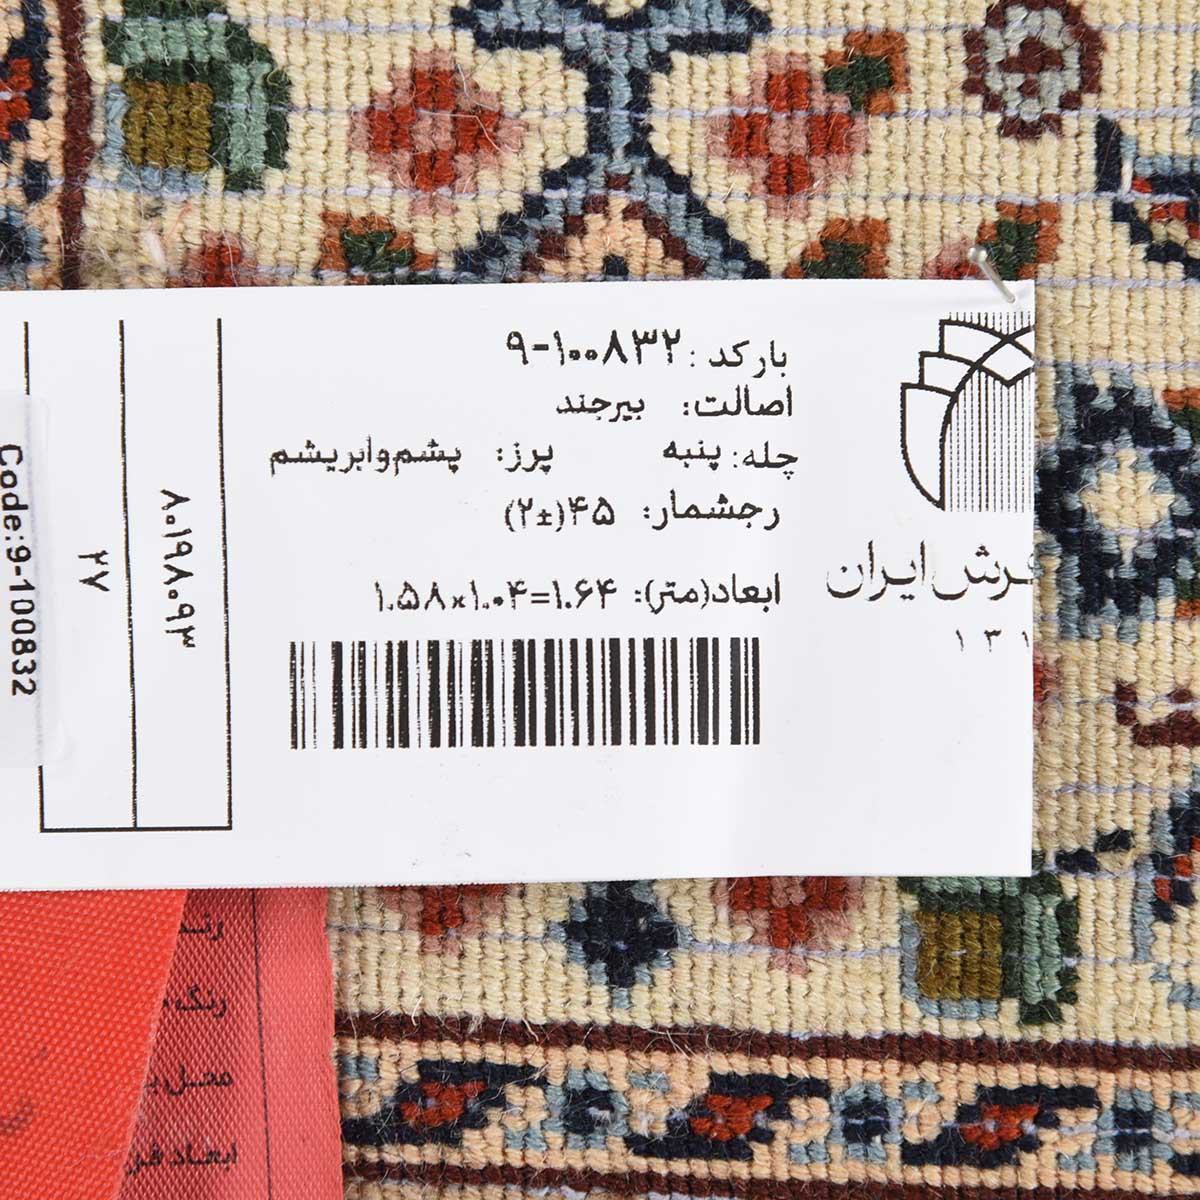 بارکد: ۹-۱۰۰۸۳۲
اصالت: بیرجند
چله: پنبه پرز: پشم و ابریشم
رجشمار: ۴۵(±۲)
ابعاد(متر): ۱.۵۸×۱.۰۴=۱.۶۴
فرش ایران
۱۳۱
۸۰۱۹۸۰۹۳
۲۷
Code:9-100832
رنگ
ابعاد